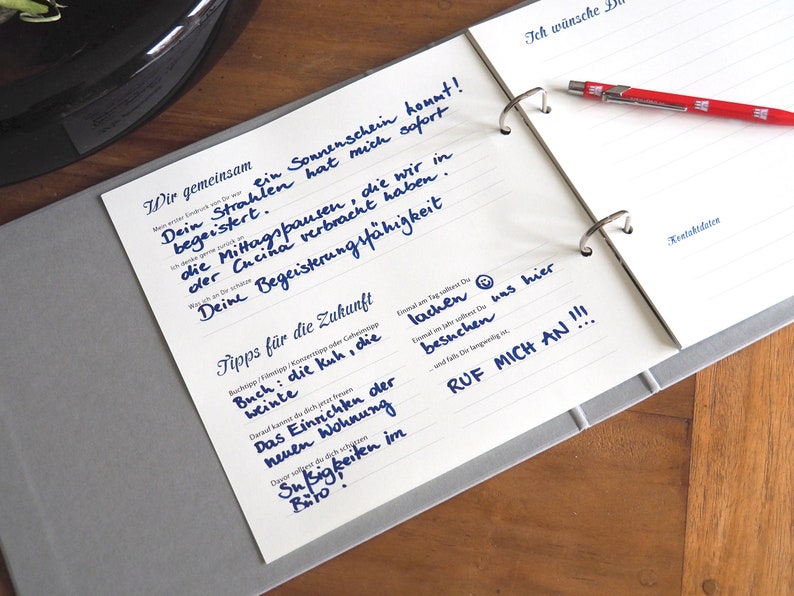 Wir gemeinsam
Mein erster Eindruck von Dir war ein Sonnenschein kommt!
Dein Strahlen hat mich sofort
begeistert.
Ich denke gerne zurück an
die Mittagspausen, die wir in
der Cucina verbracht haben.
Was ich an Dir schätze
Deine Begeisterungsfähigkeit
Tipps für die Zukunft
Buchtipp / Filmtipp / Konzerttipp oder Geheimtipp
Buch: die Kuh, die
weinte
Darauf kannst du dich jetzt freuen
Das Einrichten der
neuen Wohnung
Davor solltest du dich schützen
Süßigkeiten im
Büro!
Einmal am Tag solltest Du
lachen ☺
Einmal im Jahr solltest Du uns hier
besuchen
... und falls Dir langweilig ist,
RUF MICH AN!!!
Ich wünsche Dir
Kontaktdaten